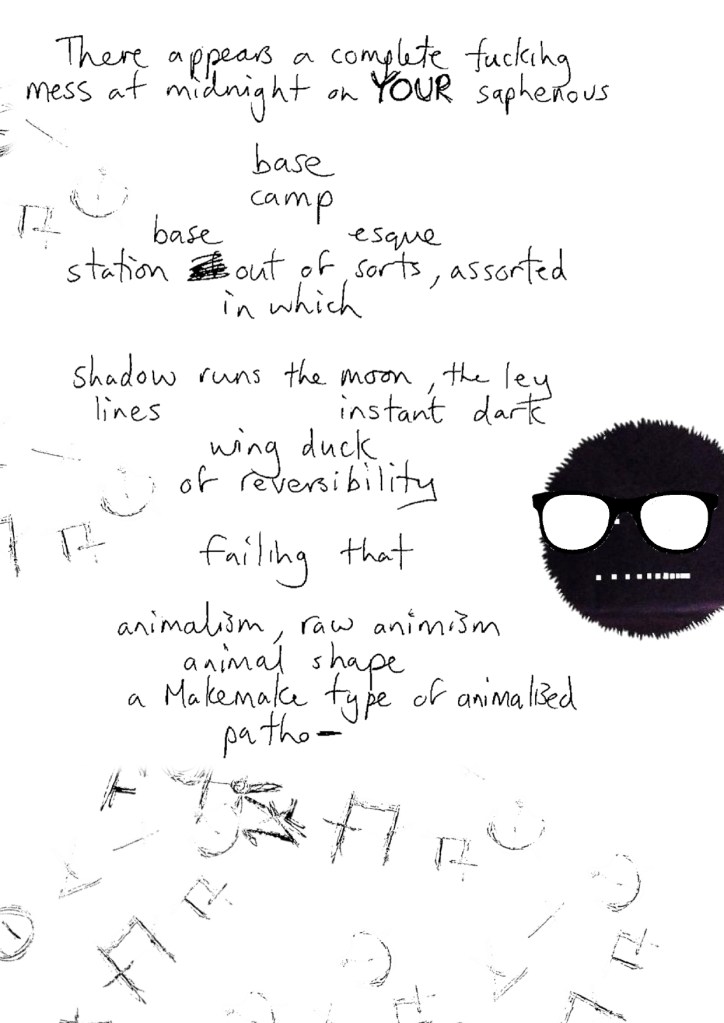 There appears a complete fucking
mess at midnight on YOUR saphenous
base
camp
base esque
station out of sorts, assorted
in which
shadow runs the moon, the ley
lines instant dark
wing duck
of reversibility
failing that
animalism, raw animism
animal shape
a Makemake type of animalised
patho-